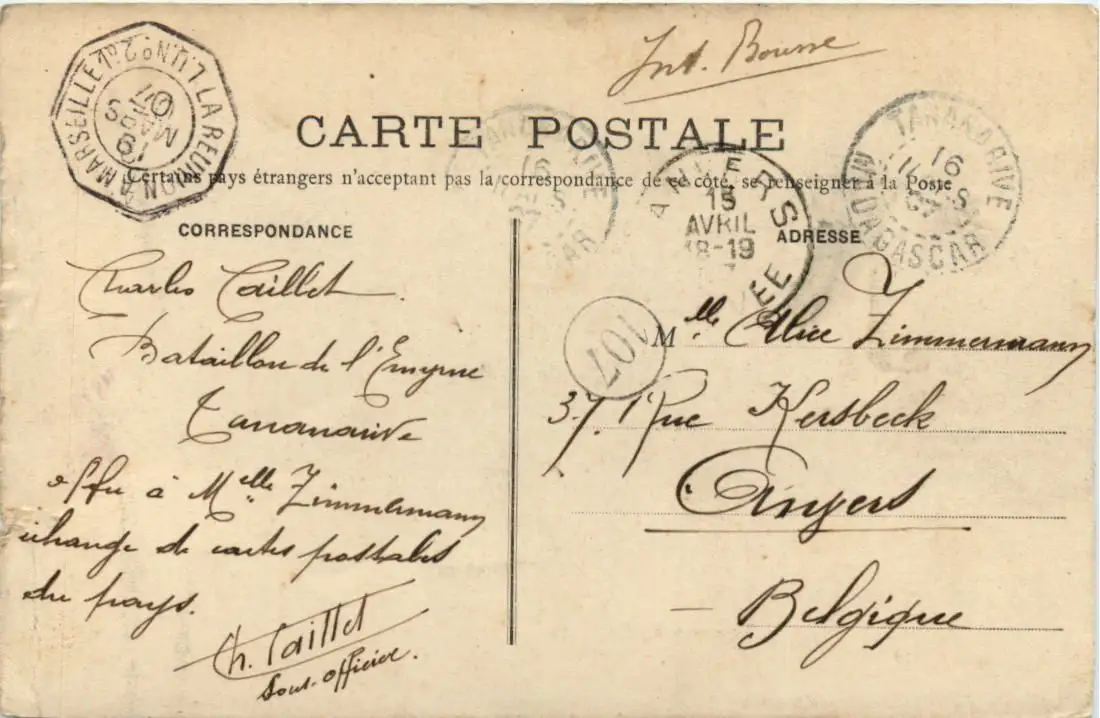 Int. Bourse
CARTE POSTALE
Certains pays étrangers n'acceptant pas la correspondance de ce côté, se renseigner à la Poste
LA REUNION A MARSEILLE L.U.Nº2
19
MARS
07
16
TANANARIVE
16
07
MADAGASCAR
15
AVRIL
18-19
CORRESPONDANCE
Charles Caillet.
Bataillon de l'Emyrne
Tananarive
offre à Melle Zimmermann
échange de cartes postales
du pays.
Ch. Caillet
Sous-officier.
ADRESSE
107
Mlle Alice Zimmermann
37, Rue Kersbeck
Anvers
Belgique